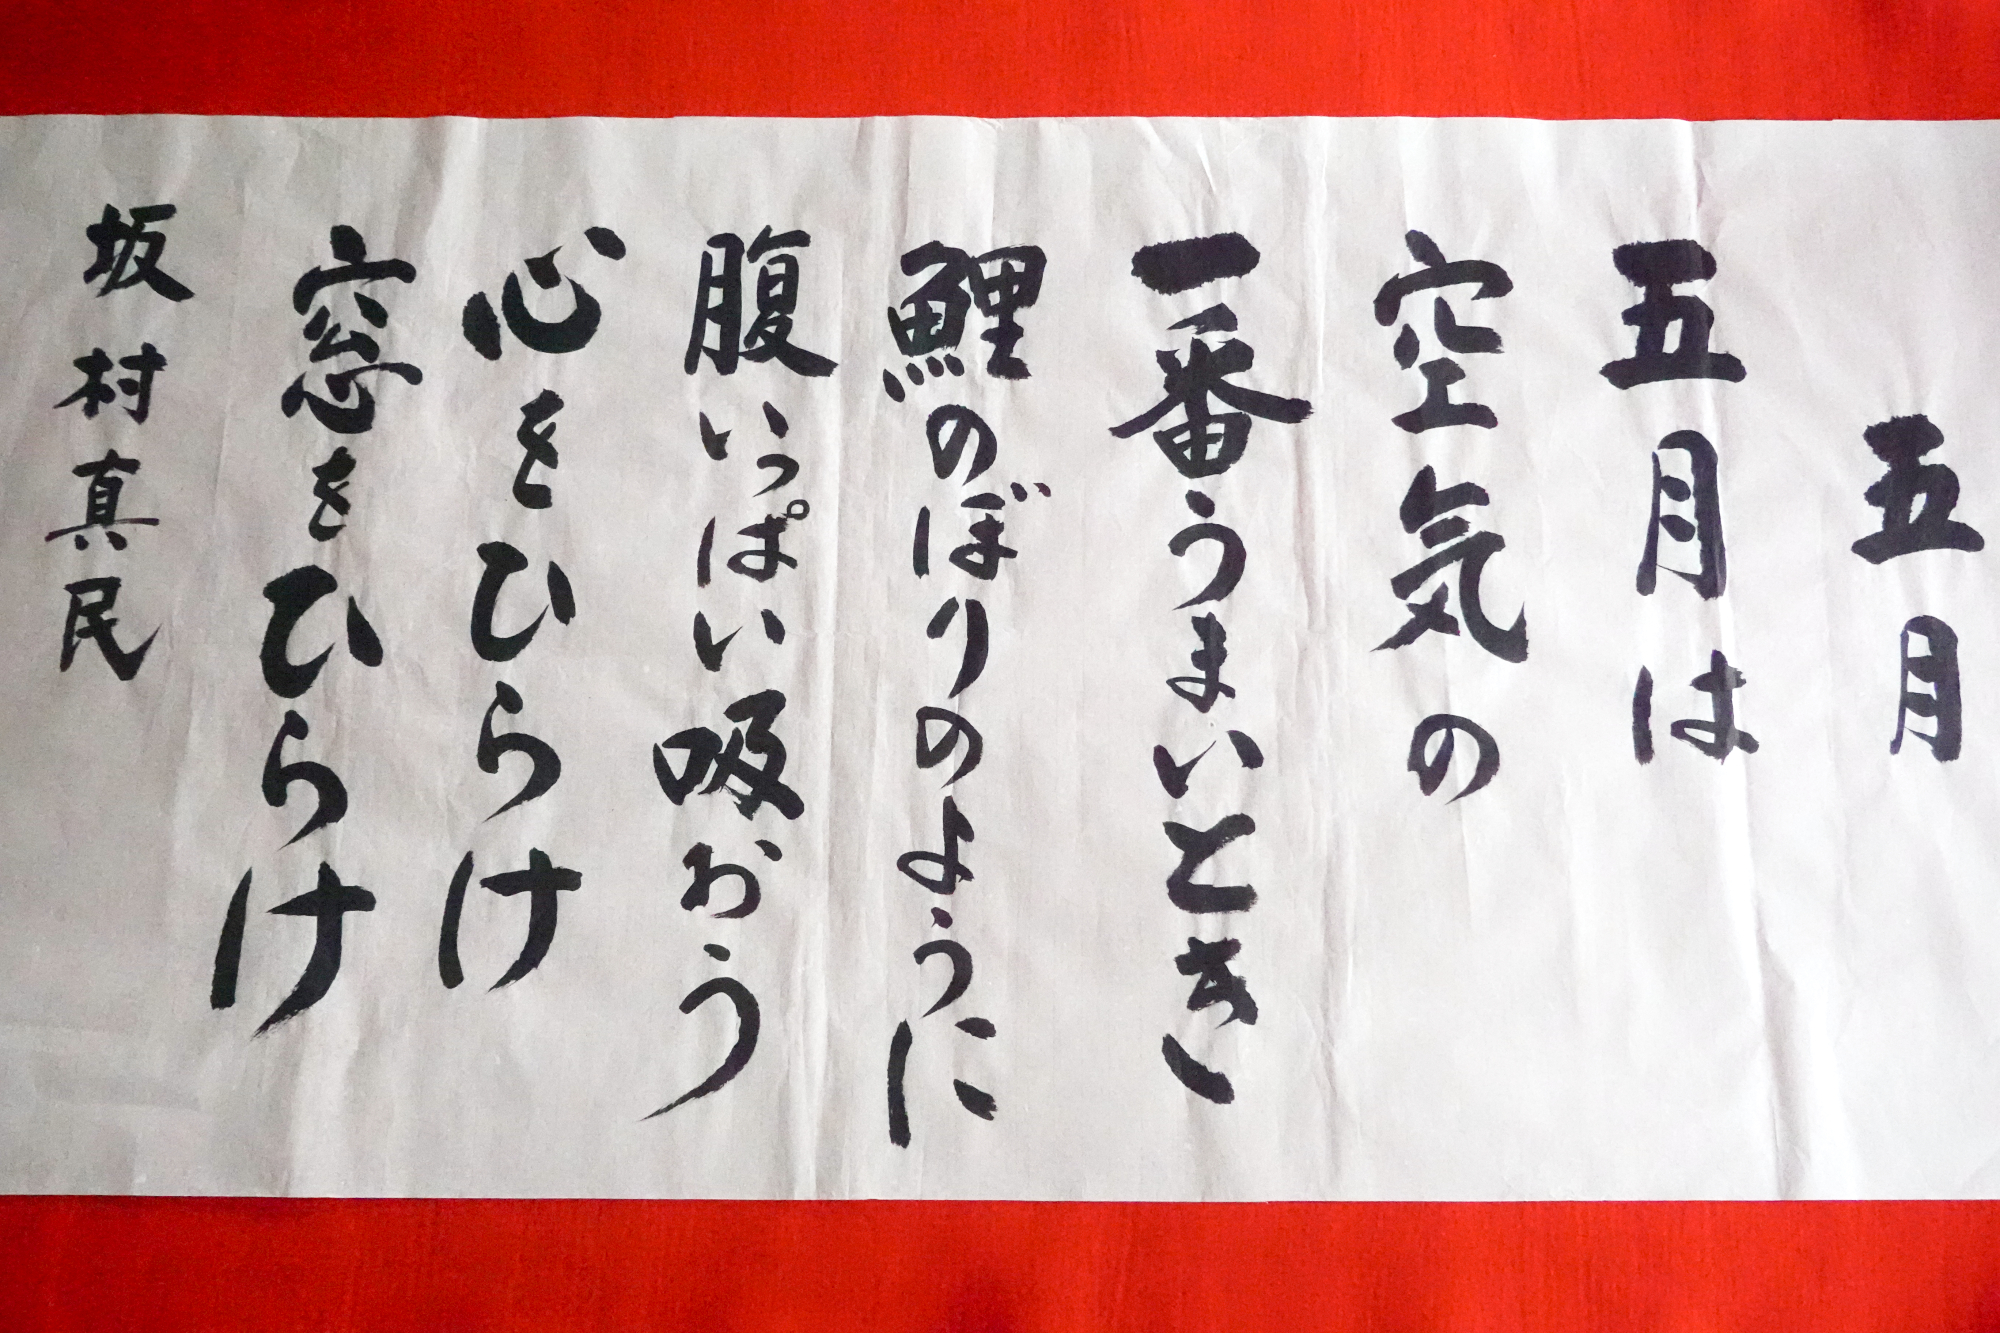 五月
五月は
空気の
一番うまいとき
鯉のぼりのように
腹いっぱい吸おう
心をひらけ
窓をひらけ
坂村真民